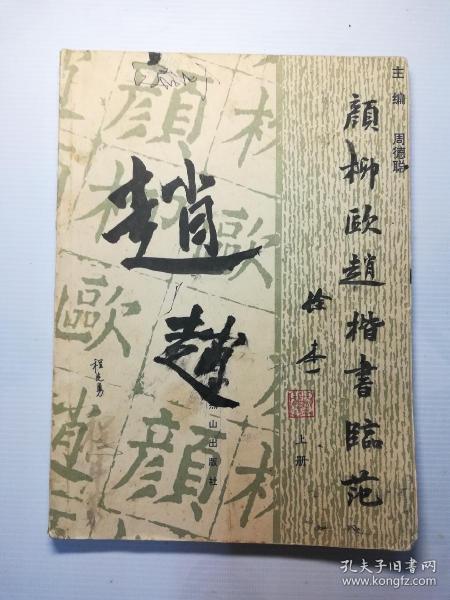 主编 周德聪
顔柳歐趙楷書臨范
徐本一
上册
趙
趙
程志勇
燕山出版社
顔
柳
歐
顔
柳
歐
趙
顔
柳
孔夫子旧书网
www.kongfz.com